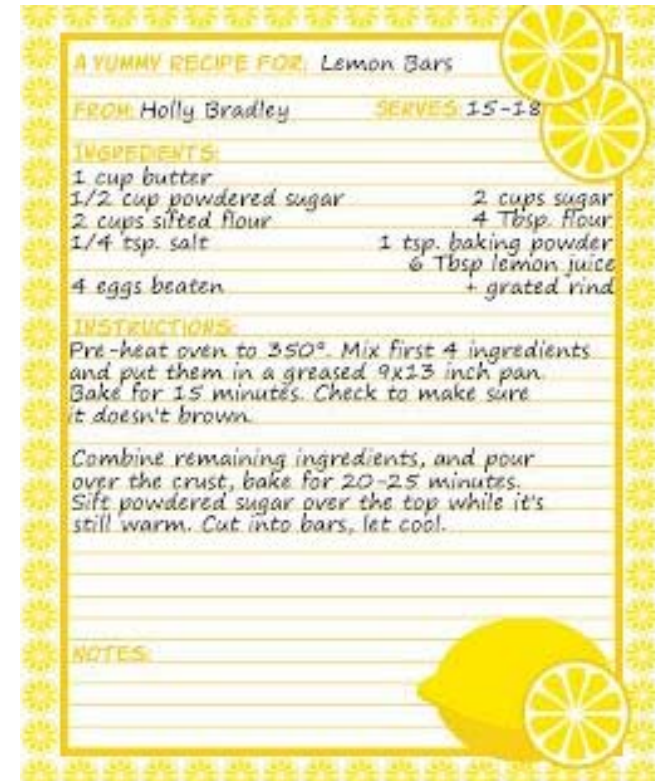 A YUMMY RECIPE FOR: Lemon Bars
FROM: Holly Bradley SERVES 15-18
INGREDIENTS:
1 cup butter
1/2 cup powdered sugar 2 cups sugar
2 cups sifted flour 4 Tbsp. flour
1/4 tsp. salt 1 tsp. baking powder
6 Tbsp lemon juice
4 eggs beaten + grated rind
INSTRUCTIONS:
Pre-heat oven to 350°. Mix first 4 ingredients
and put them in a greased 9x13 inch pan.
Bake for 15 minutes. Check to make sure
it doesn't brown.
Combine remaining ingredients, and pour
over the crust, bake for 20-25 minutes.
Sift powdered sugar over the top while it's
still warm. Cut into bars, let cool.
NOTES: